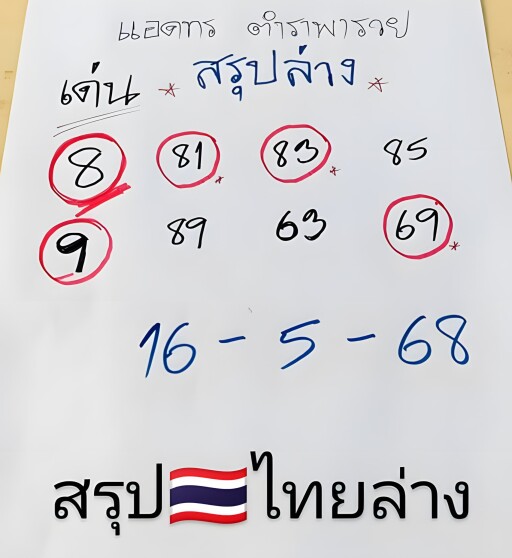 แอดทร ตำราพารวย
เด่น * สรุปล่าง *
8 81 * 83 * 85
9 89 63 69 *
16 - 5 - 68
สรุป🇹🇭ไทยล่าง